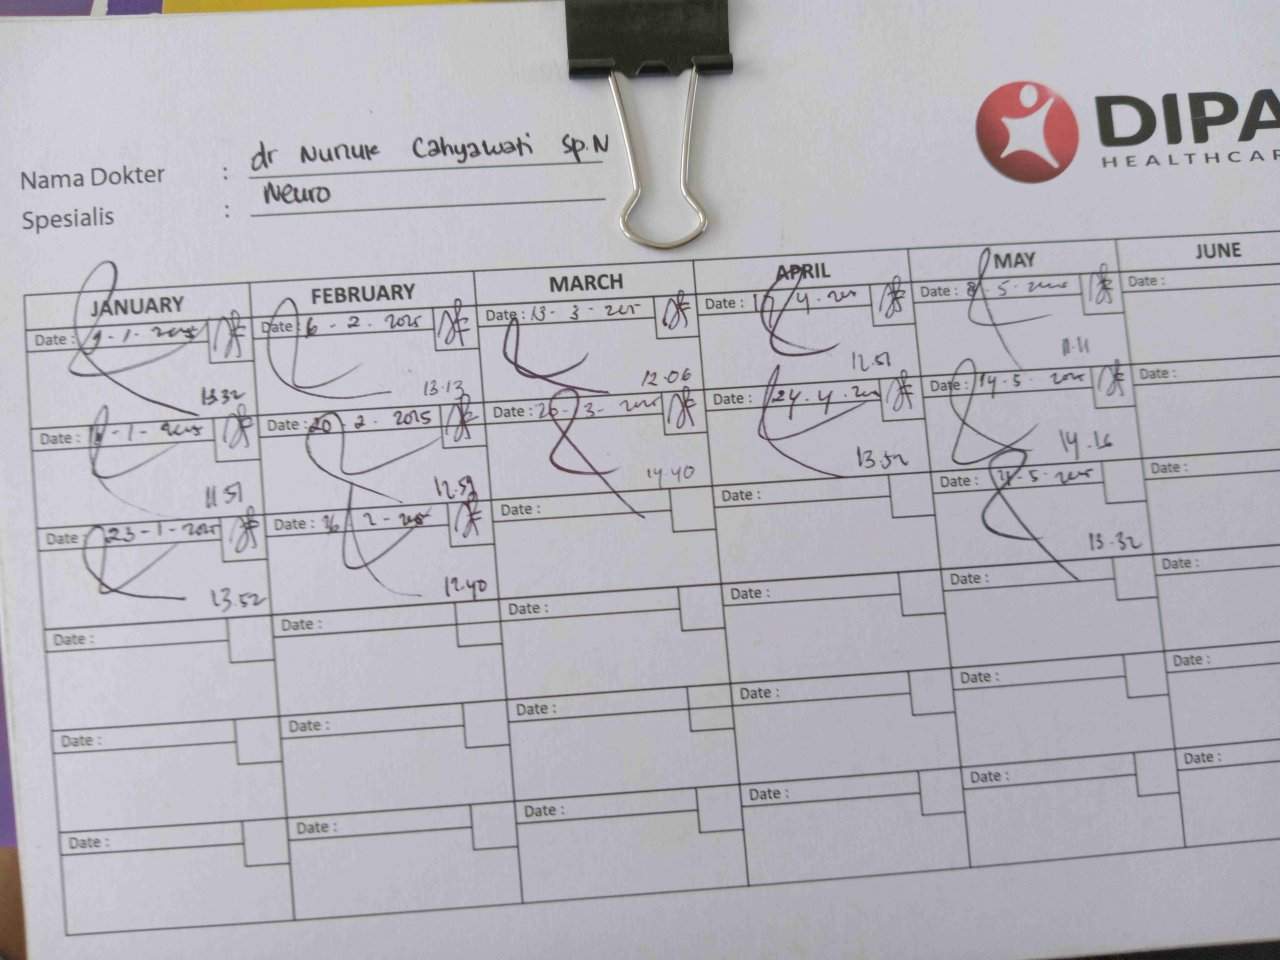 DIPA
HEALTHCAR
Nama Dokter : dr Nunuk Cahyawati Sp.N
Spesialis : Neuro
JANUARY FEBRUARY MARCH APRIL MAY JUNE
Date : 9-1-2025 Date : 6-2-2025 Date : 13-3-2025 Date : 4-2025 Date : 8-5-2025 Date :
13.32 13.13 12.06 12.51 11.11
Date : -1-2025 Date : 20-2-2025 Date : 20-3-2025 Date : 24.4.2025 Date : 14-5-2025 Date :
11.51 12.59 14.40 13.52 14.16
Date : 23-1-2025 Date : 26-2-2025 Date : Date : Date : -5-2025 Date :
13.52 12.40 13.32
Date : Date : Date : Date : Date : Date :
Date : Date : Date : Date : Date : Date :
Date : Date : Date : Date : Date : Date :